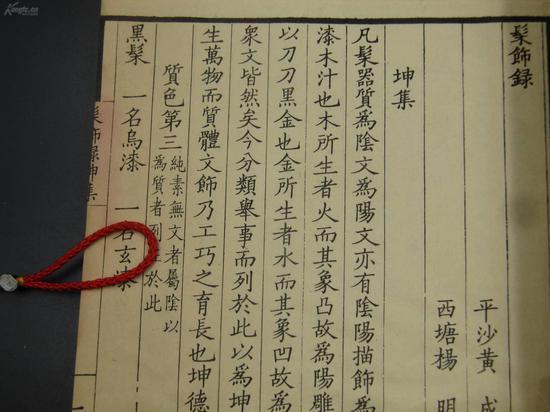 髹飾録
平沙黄
西塘楊 明
坤集
凡髹器質爲陰文爲陽文亦有陰陽描飾爲
漆木汁也木所生者火而其象凸故爲陽雕
以刀刀黑金也金所生者水而其象凹故爲
衆文皆然矣今分類舉事而列於此以爲坤
生萬物而質體文飾乃工巧之育長也坤德
質色第三 純素無文者屬陰以
爲質者列在於此
黑髹 一名烏漆 一名玄漆
髹飾録坤集
Kongfz.cn